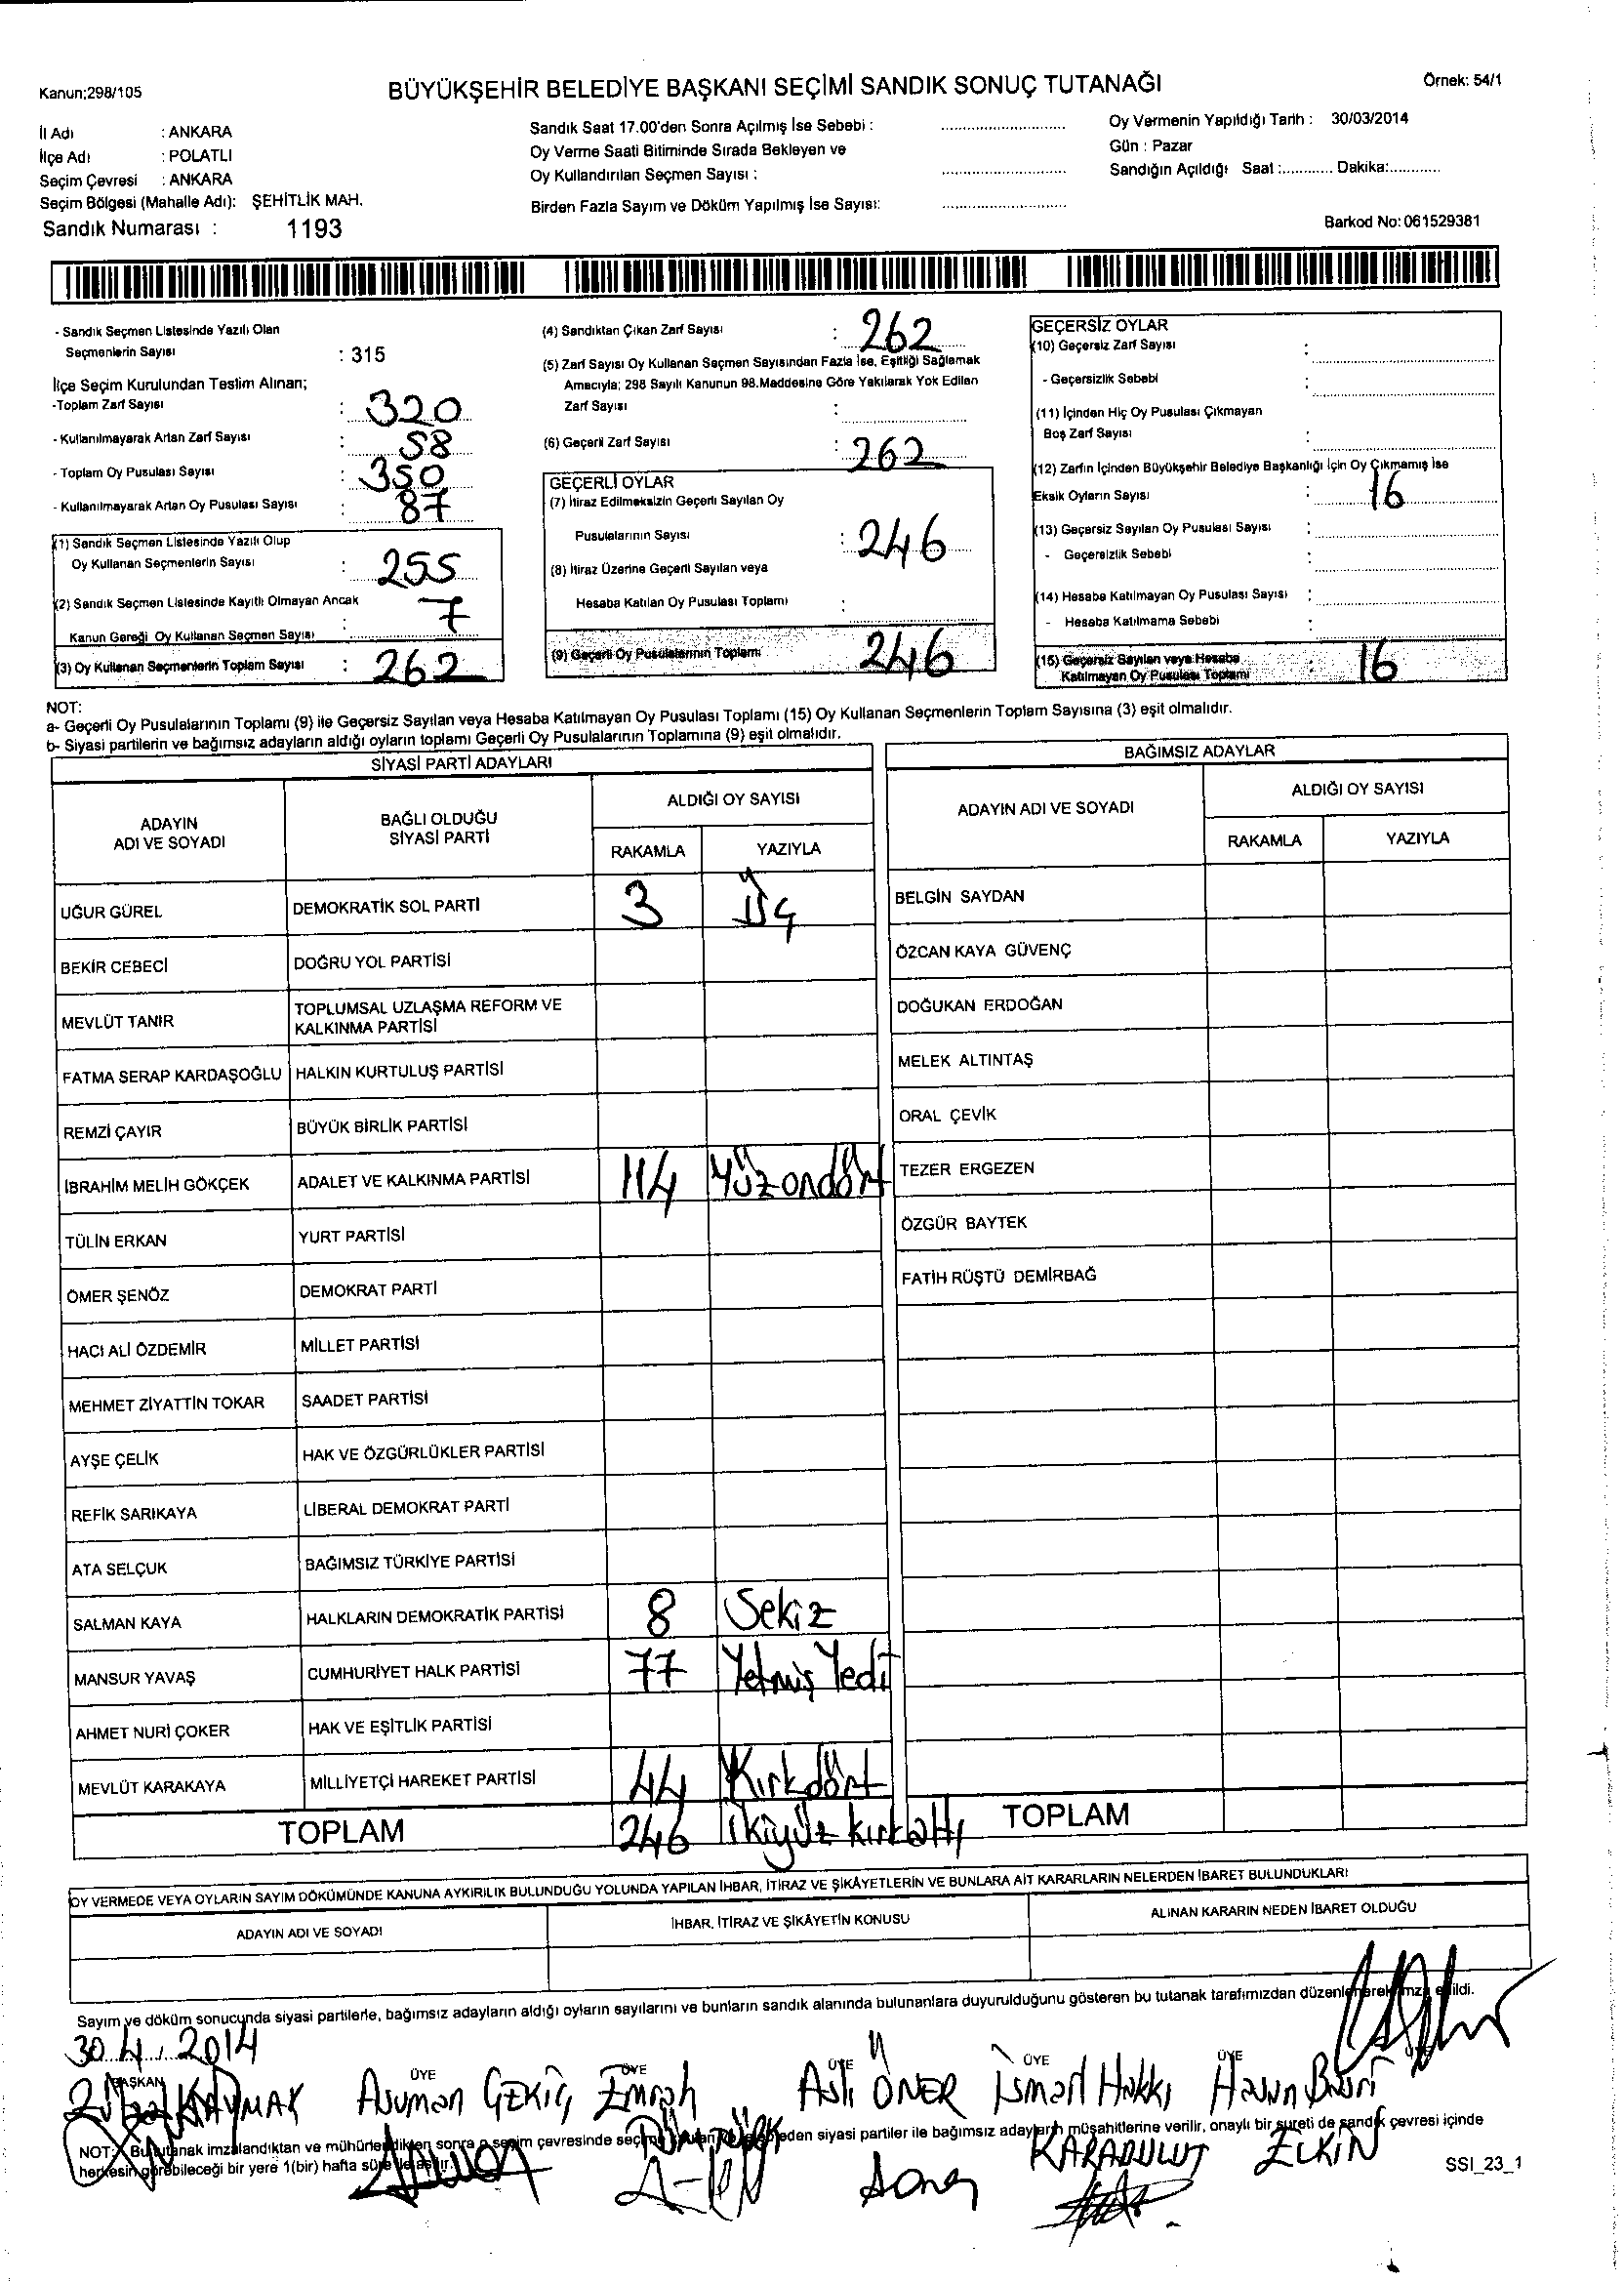 Kanun;298/105
BÜYÜKŞEHİR BELEDİYE BAŞKANI SEÇİMİ SANDIK SONUÇ TUTANAĞI
Örnek: 54/1
İl Adı : ANKARA
İlçe Adı : POLATLI
Seçim Çevresi : ANKARA
Seçim Bölgesi (Mahalle Adı): ŞEHİTLİK MAH.
Sandık Numarası : 1193
Sandık Saat 17.00'den Sonra Açılmış İse Sebebi :
Oy Verme Saati Bitiminde Sırada Bekleyen ve
Oy Kullandırılan Seçmen Sayısı :
Birden Fazla Sayım ve Döküm Yapılmış İse Sayısı:
Oy Vermenin Yapıldığı Tarih : 30/03/2014
Gün : Pazar
Sandığın Açıldığı Saat :............ Dakika:............
Barkod No: 061529381
- Sandık Seçmen Listesinde Yazılı Olan
Seçmenlerin Sayısı : 315
İlçe Seçim Kurulundan Teslim Alınan;
-Toplam Zarf Sayısı : 320
- Kullanılmayarak Artan Zarf Sayısı : 58
- Toplam Oy Pusulası Sayısı : 350
- Kullanılmayarak Artan Oy Pusulası Sayısı : 87
(1) Sandık Seçmen Listesinde Yazılı Olup
Oy Kullanan Seçmenlerin Sayısı : 255
(2) Sandık Seçmen Listesinde Kayıtlı Olmayan Ancak
Kanun Gereği Oy Kullanan Seçmen Sayısı : 7
(3) Oy Kullanan Seçmenlerin Toplam Sayısı : 262
(4) Sandıktan Çıkan Zarf Sayısı : 262
(5) Zarf Sayısı Oy Kullanan Seçmen Sayısından Fazla İse, Eşitliği Sağlamak
Amacıyla; 298 Sayılı Kanunun 98.Maddesine Göre Yakılarak Yok Edilen
Zarf Sayısı :
(6) Geçerli Zarf Sayısı : 262
GEÇERLİ OYLAR
(7) İtiraz Edilmeksizin Geçerli Sayılan Oy
Pusulalarının Sayısı : 246
(8) İtiraz Üzerine Geçerli Sayılan veya
Hesaba Katılan Oy Pusulası Toplamı :
(9) Geçerli Oy Pusulalarının Toplamı 246
GEÇERSİZ OYLAR
(10) Geçersiz Zarf Sayısı :
- Geçersizlik Sebebi :
(11) İçinden Hiç Oy Pusulası Çıkmayan
Boş Zarf Sayısı :
(12) Zarfın İçinden Büyükşehir Belediye Başkanlığı İçin Oy Çıkmamış İse
Eksik Oyların Sayısı : 16
(13) Geçersiz Sayılan Oy Pusulası Sayısı :
- Geçersizlik Sebebi :
(14) Hesaba Katılmayan Oy Pusulası Sayısı :
- Hesaba Katılmama Sebebi :
(15) Geçersiz Sayılan veya Hesaba
Katılmayan Oy Pusulası Toplamı : 16
NOT:
a- Geçerli Oy Pusulalarının Toplamı (9) ile Geçersiz Sayılan veya Hesaba Katılmayan Oy Pusulası Toplamı (15) Oy Kullanan Seçmenlerin Toplam Sayısına (3) eşit olmalıdır.
b- Siyasi partilerin ve bağımsız adayların aldığı oyların toplamı Geçerli Oy Pusulalarının Toplamına (9) eşit olmalıdır.
SİYASİ PARTİ ADAYLARI
ADAYIN ADI VE SOYADI
BAĞLI OLDUĞU SİYASİ PARTİ
ALDIĞI OY SAYISI
RAKAMLA YAZIYLA
UĞUR GÜREL DEMOKRATİK SOL PARTİ 3 Üç
BEKİR CEBECİ DOĞRU YOL PARTİSİ
MEVLÜT TANIR TOPLUMSAL UZLAŞMA REFORM VE
KALKINMA PARTİSİ
FATMA SERAP KARDAŞOĞLU HALKIN KURTULUŞ PARTİSİ
REMZİ ÇAYIR BÜYÜK BİRLİK PARTİSİ
İBRAHİM MELİH GÖKÇEK ADALET VE KALKINMA PARTİSİ 114 Yüzondört
TÜLİN ERKAN YURT PARTİSİ
ÖMER ŞENÖZ DEMOKRAT PARTİ
HACI ALİ ÖZDEMİR MİLLET PARTİSİ
MEHMET ZİYATTİN TOKAR SAADET PARTİSİ
AYŞE ÇELİK HAK VE ÖZGÜRLÜKLER PARTİSİ
REFİK SARIKAYA LİBERAL DEMOKRAT PARTİ
ATA SELÇUK BAĞIMSIZ TÜRKİYE PARTİSİ
SALMAN KAYA HALKLARIN DEMOKRATİK PARTİSİ 8 Sekiz
MANSUR YAVAŞ CUMHURİYET HALK PARTİSİ 77 Yetmiş Yedi
AHMET NURİ ÇOKER HAK VE EŞİTLİK PARTİSİ
MEVLÜT KARAKAYA MİLLİYETÇİ HAREKET PARTİSİ 44 Kırkdört
TOPLAM 246 İkiyüz kırkaltı
BAĞIMSIZ ADAYLAR
ADAYIN ADI VE SOYADI
ALDIĞI OY SAYISI
RAKAMLA YAZIYLA
BELGİN SAYDAN
ÖZCAN KAYA GÜVENÇ
DOĞUKAN ERDOĞAN
MELEK ALTINTAŞ
ORAL ÇEVİK
TEZER ERGEZEN
ÖZGÜR BAYTEK
FATİH RÜŞTÜ DEMİRBAĞ
TOPLAM
OY VERMEDE VEYA OYLARIN SAYIM DÖKÜMÜNDE KANUNA AYKIRILIK BULUNDUĞU YOLUNDA YAPILAN İHBAR, İTİRAZ VE ŞİKÂYETLERİN VE BUNLARA AİT KARARLARIN NELERDEN İBARET BULUNDUKLARI
ADAYIN ADI VE SOYADI
İHBAR, İTİRAZ VE ŞİKÂYETİN KONUSU
ALINAN KARARIN NEDEN İBARET OLDUĞU
Sayım ve döküm sonucunda siyasi partilerle, bağımsız adayların aldığı oyların sayılarını ve bunların sandık alanında bulunanlara duyurulduğunu gösteren bu tutanak tarafımızdan düzenlenerek imza edildi.
30.4.2014
BAŞKAN ÜYE ÜYE ÜYE ÜYE ÜYE
KAYMAK Asuman Emrah Aslı ÖNER İsmail Hakkı Harun
NOT: Bu tutanak imzalandıktan ve mühürlendikten sonra o seçim çevresinde seçime eden siyasi partiler ile bağımsız adayların müşahitlerine verilir, onaylı bir sureti de sandık çevresi içinde
KARABULUT ELKİN
herkesin görebileceği bir yere 1(bir) hafta süre ile asılır.
SSI_23_1